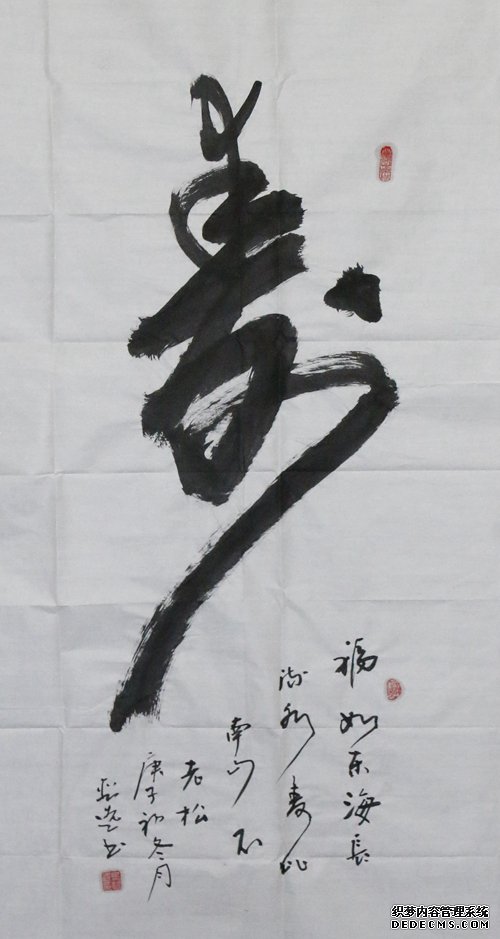 寿
福如东海長
流水寿比
南山不
老松
庚子初冬月
书
织梦内容管理系统
DEDECMS.COM